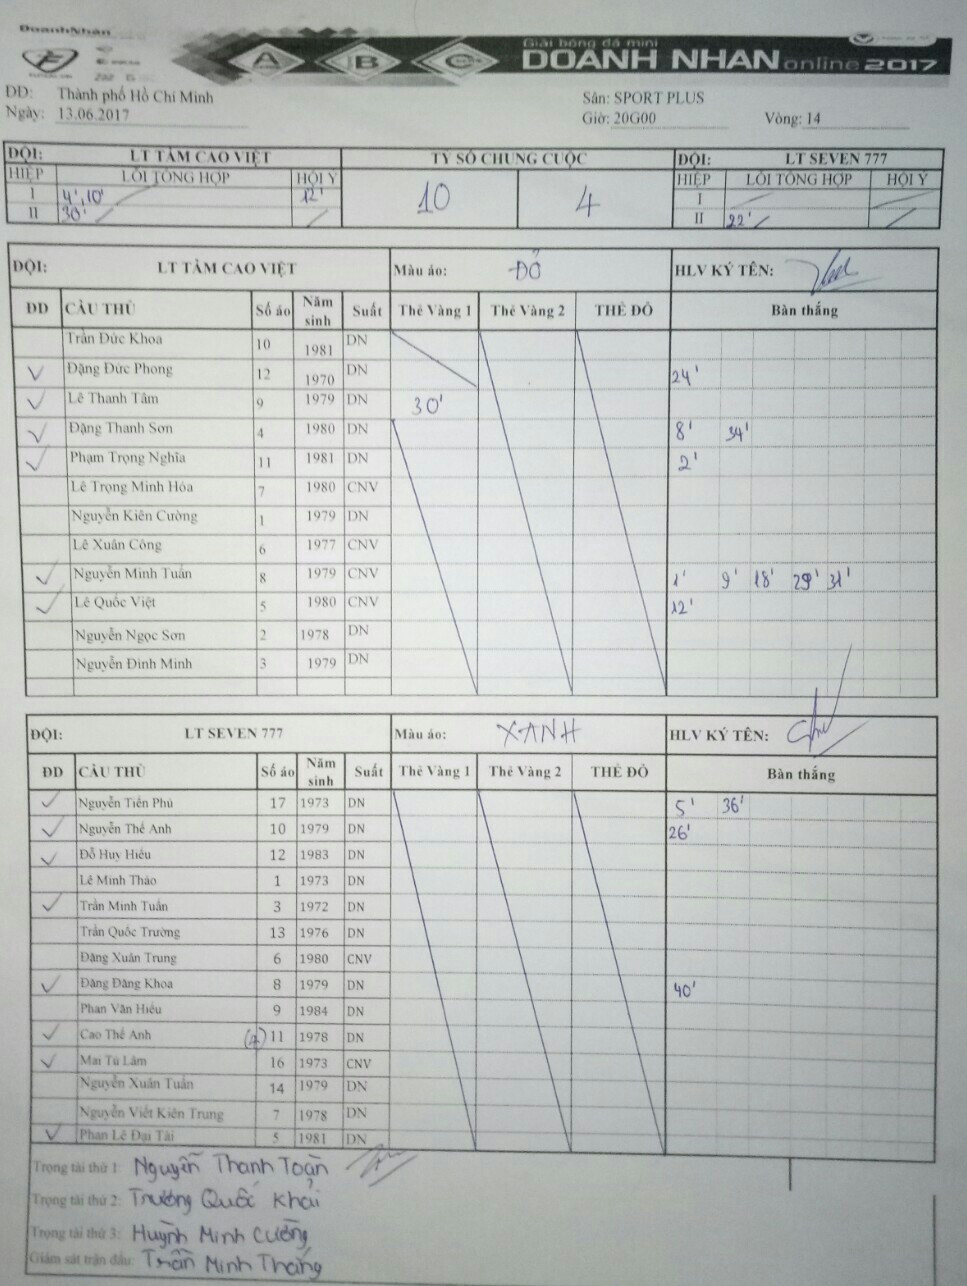 DoanhNhân
A B C
Giải bóng đá mini
DOANH NHAN online 2017
DD: Thành phố Hồ Chí Minh Sân: SPORT PLUS
Ngày: 13.06.2017 Giờ: 20G00 Vòng: 14
ĐỘI: LT TẦM CAO VIỆT TỶ SỐ CHUNG CUỘC ĐỘI: LT SEVEN 777
HIỆP LỖI TỔNG HỢP HỘI Ý 10 4 HIỆP LỖI TỔNG HỢP HỘI Ý
I 4', 10' 12' I
II 30' II 22'
ĐỘI: LT TẦM CAO VIỆT Màu áo: ĐỎ HLV KÝ TÊN:
DD CẦU THỦ Số áo Năm sinh Suất Thẻ Vàng 1 Thẻ Vàng 2 THẺ ĐỎ Bàn thắng
Trần Đức Khoa 10 1981 DN
Đặng Đức Phong 12 1970 DN 24'
Lê Thanh Tâm 9 1979 DN 30'
Đặng Thanh Sơn 4 1980 DN 8' 34'
Phạm Trọng Nghĩa 11 1981 DN 2'
Lê Trọng Minh Hóa 7 1980 CNV
Nguyễn Kiên Cường 1 1979 DN
Lê Xuân Công 6 1977 CNV
Nguyễn Minh Tuấn 8 1979 CNV 1' 9' 18' 29' 31'
Lê Quốc Việt 5 1980 CNV 12'
Nguyễn Ngọc Sơn 2 1978 DN
Nguyễn Đình Minh 3 1979 DN
ĐỘI: LT SEVEN 777 Màu áo: XANH HLV KÝ TÊN:
DD CẦU THỦ Số áo Năm sinh Suất Thẻ Vàng 1 Thẻ Vàng 2 THẺ ĐỎ Bàn thắng
Nguyễn Tiến Phú 17 1973 DN 5' 36'
Nguyễn Thế Anh 10 1979 DN 26'
Đỗ Huy Hiếu 12 1983 DN
Lê Minh Thảo 1 1973 DN
Trần Minh Tuấn 3 1972 DN
Trần Quốc Trường 13 1976 DN
Đặng Xuân Trung 6 1980 CNV
Đặng Đăng Khoa 8 1979 DN 40'
Phan Văn Hiếu 9 1984 DN
Cao Thế Anh 11 1978 DN
Mai Tú Lâm 16 1973 CNV
Nguyễn Xuân Tuấn 14 1979 DN
Nguyễn Viết Kiên Trung 7 1978 DN
Phan Lê Đại Tài 5 1981 DN
Trọng tài thứ 1: Nguyễn Thanh Toàn
Trọng tài thứ 2: Trương Quốc Khải
Trọng tài thứ 3: Huỳnh Minh Cường
Giám sát trận đấu: Trần Minh Thắng